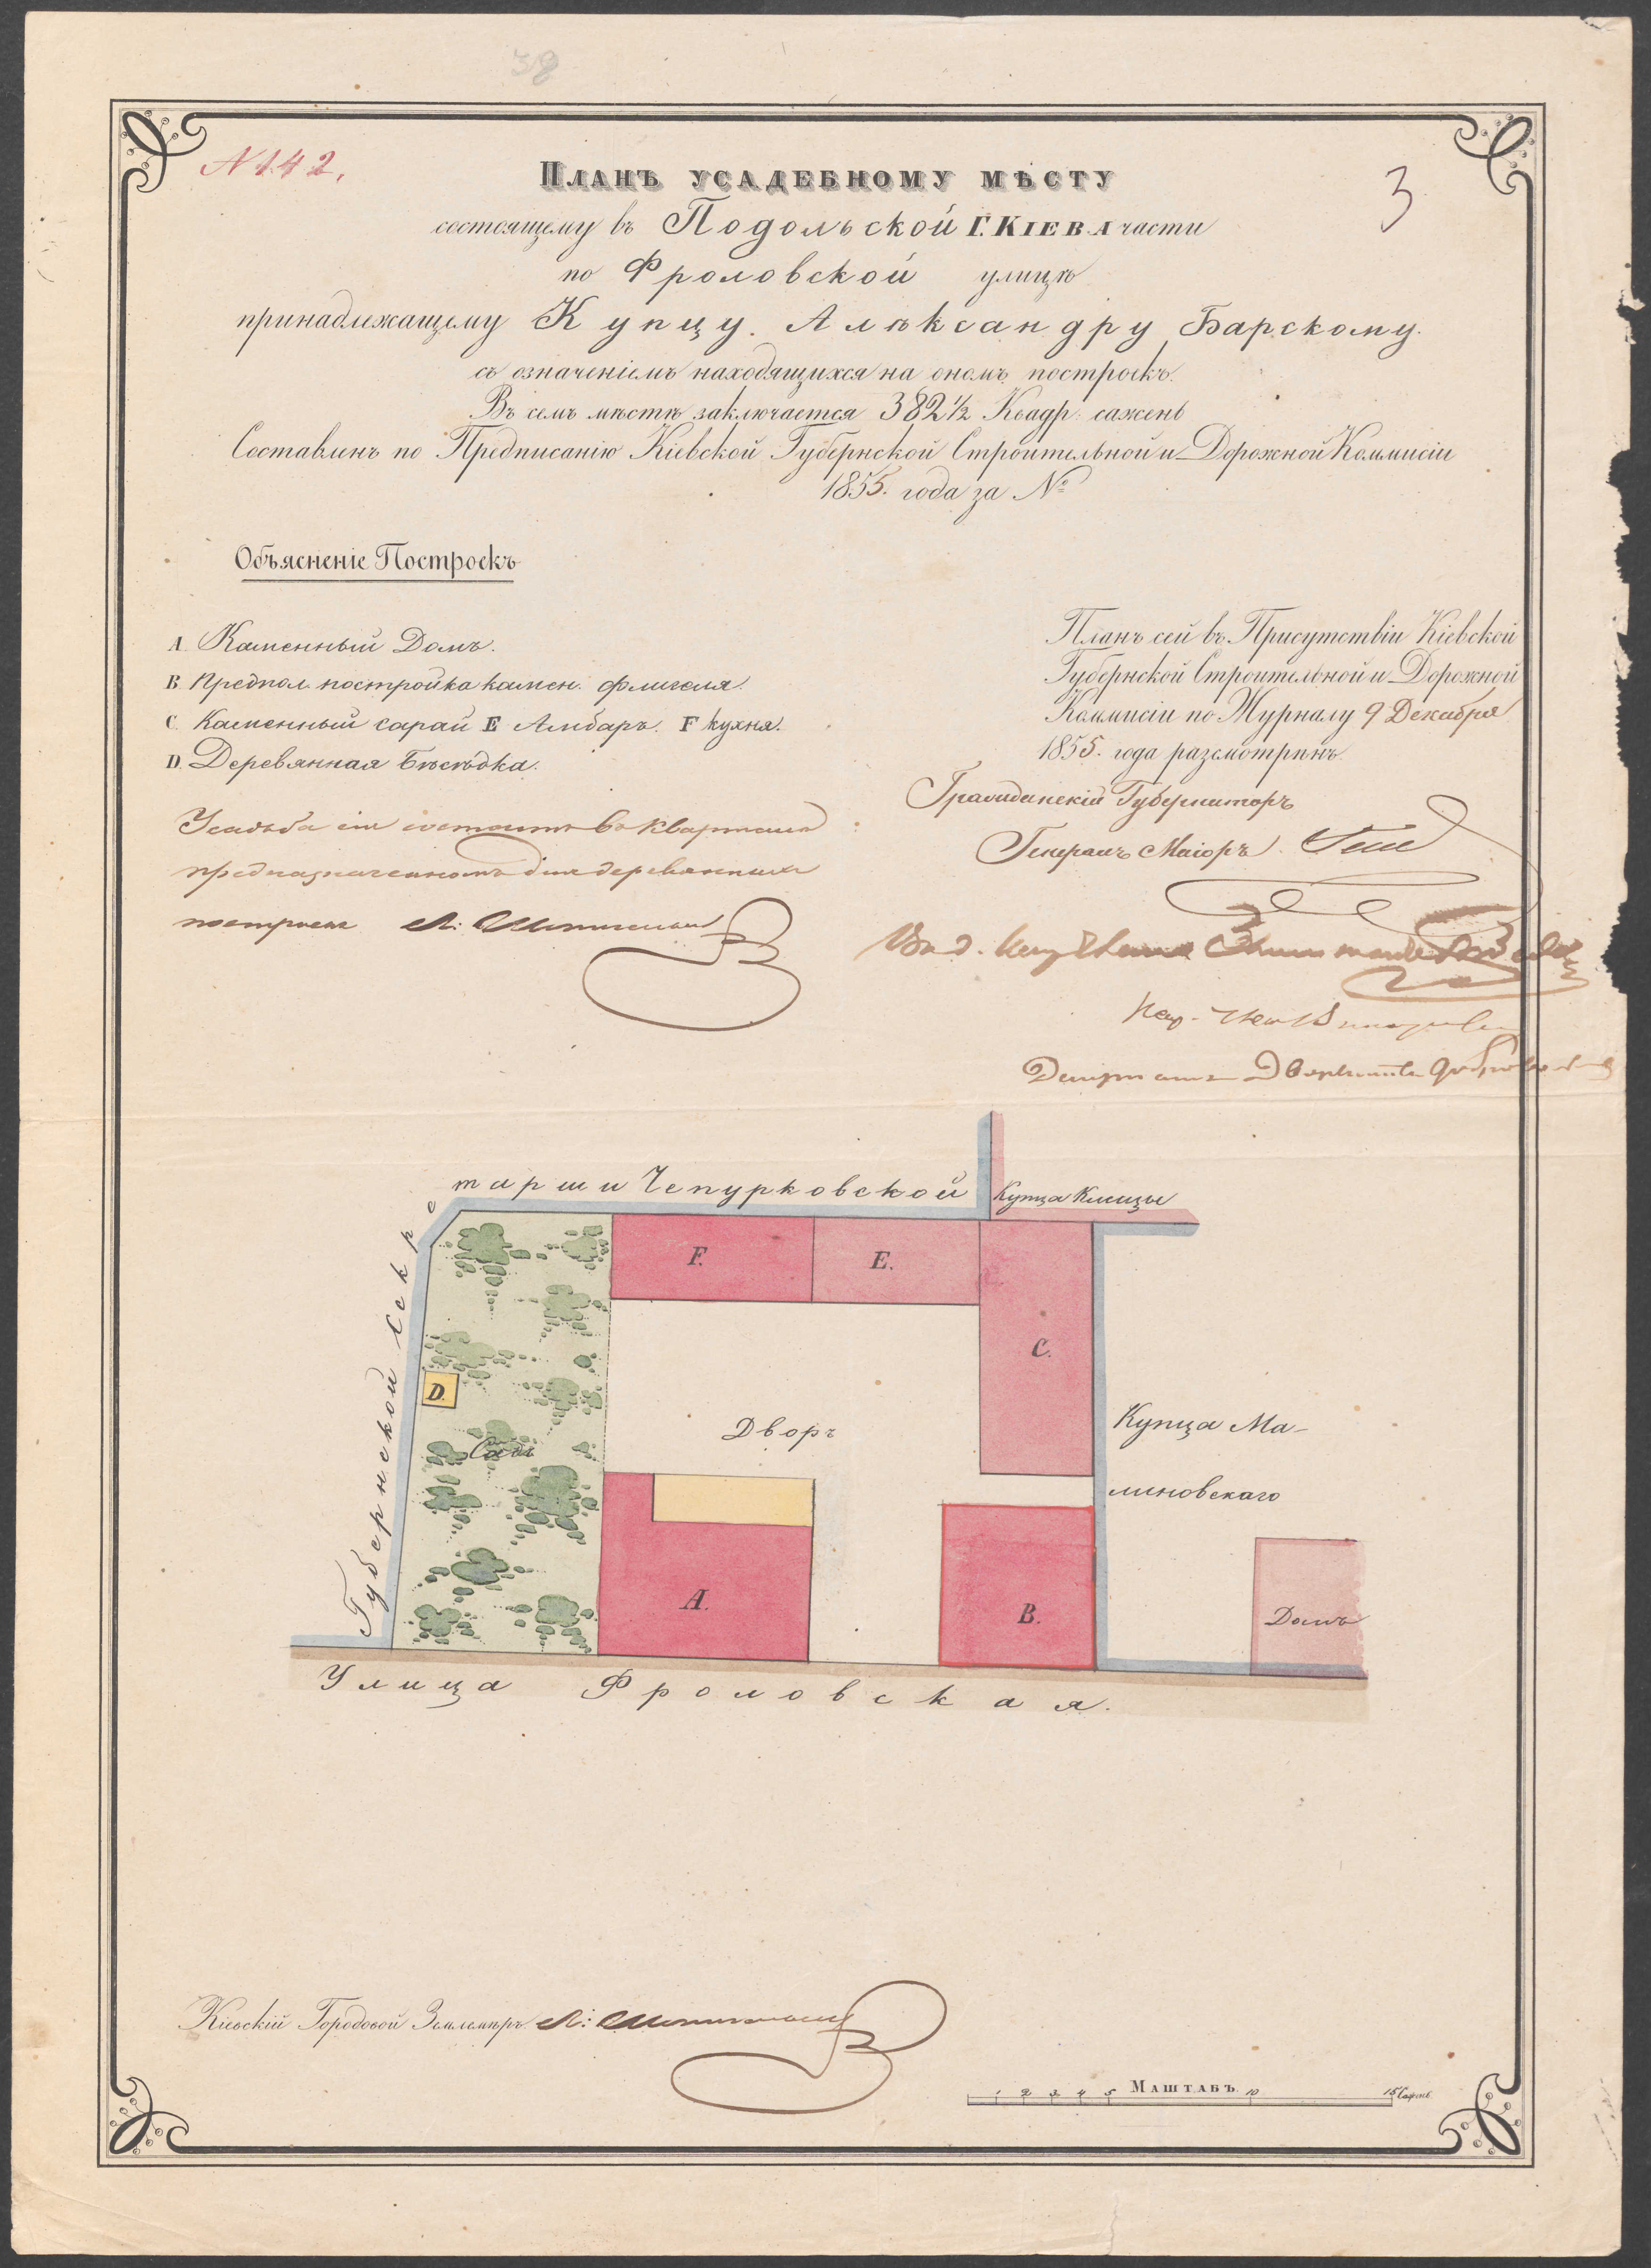 38
N 142.
3
Планъ усадебному мѣсту
состоящему въ Подольской Г. Кіева части
по Фроловской улицѣ
принадлежащему Купцу Алѣксандру Барскому.
съ означеніемъ находящихся на ономъ построекъ.
Въ семъ мѣстѣ заключается 382 1/2 Квадр: сажень
Составленъ по Предписанію Кіевской Губернской Строительной и Дорожной Коммисіи
1855. года за №
Объясненіе Построекъ
A. Каменный Домъ.
B. Предпол. постройка камен. флигеля.
C. Каменный сарай E Амбаръ. F кухня.
D. Деревянная Бѣсѣдка.
Усадьба сія состоитъ въ кварталѣ
предназначенномъ для деревянныхъ
построекъ Л:
Планъ сей въ Присутствіи Кіевской
Губернской Строительной и Дорожной
Коммисіи по Журналу 9 Декабря
1855. года разсмотрѣнъ.
Гражданскій Губернаторъ
Генералъ Маіоръ
Губернской Секретарши Чепурковской
Купца Клиицы
F.
E.
C.
D.
Садъ
Дворъ
Купца Ма-
линовскаго
A.
B.
Домъ
Улица Фроловская.
Кіевскій Городовой Землемѣръ Л:
Маштабъ.
1 2 3 4 5 10 15 Сажень